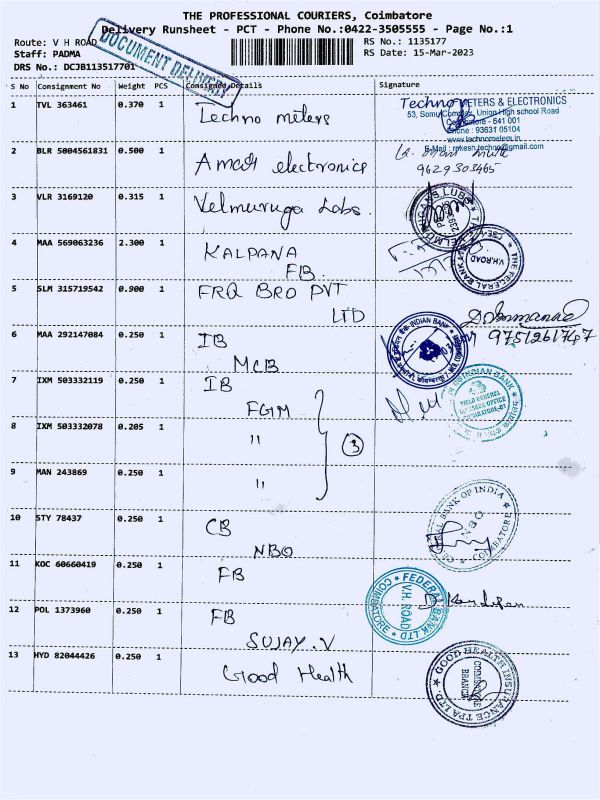 THE PROFESSIONAL COURIERS, Coimbatore
Delivery Runsheet - PCT - Phone No.:0422-3505555 - Page No.:1
Route: V H ROAD
RS No.: 1135177
Staff: PADMA
RS Date: 15-Mar-2023
DRS No.: DCJB113517701
DOCUMENT DELIVERY
S No Consignment No Weight PCS Consigned Details Signature
1 TVL 363461 0.370 1 Techno meters
Techno METERS & ELECTRONICS
Union High school Road
641 001
Phone : 93631 05104
www.technometers.in
2 BLR 5004561831 0.500 1 electronics
9629303465
3 VLR 3169120 0.315 1 Velmuruga Labs.
4 MAA 569063236 2.300 1 KALPANA
FB.
THE FEDERAL BANK
V.H.ROAD
5 SLM 315719542 0.900 1 FRQ BRO PVT
LTD
9751261747
6 MAA 292147084 0.250 1 IB
MCB
INDIAN BANK
7 IXM 503332119 0.250 1 IB
FGM
INDIAN BANK
FIELD GENERAL
8 IXM 503332078 0.205 1 "
3
9 MAN 243869 0.250 1 "
10 STY 78437 0.250 1 CB
NBO
CENTRAL BANK OF INDIA
COIMBATORE
11 KOC 60660419 0.250 1 FB
FEDERAL BANK LTD
V.H. ROAD
COIMBATORE
12 POL 1373960 0.250 1 FB
SUJAY.V
13 HYD 82044426 0.250 1 Good Health
GOOD HEALTH INSURANCE TPA LTD.
COIMBATORE
BRANCH